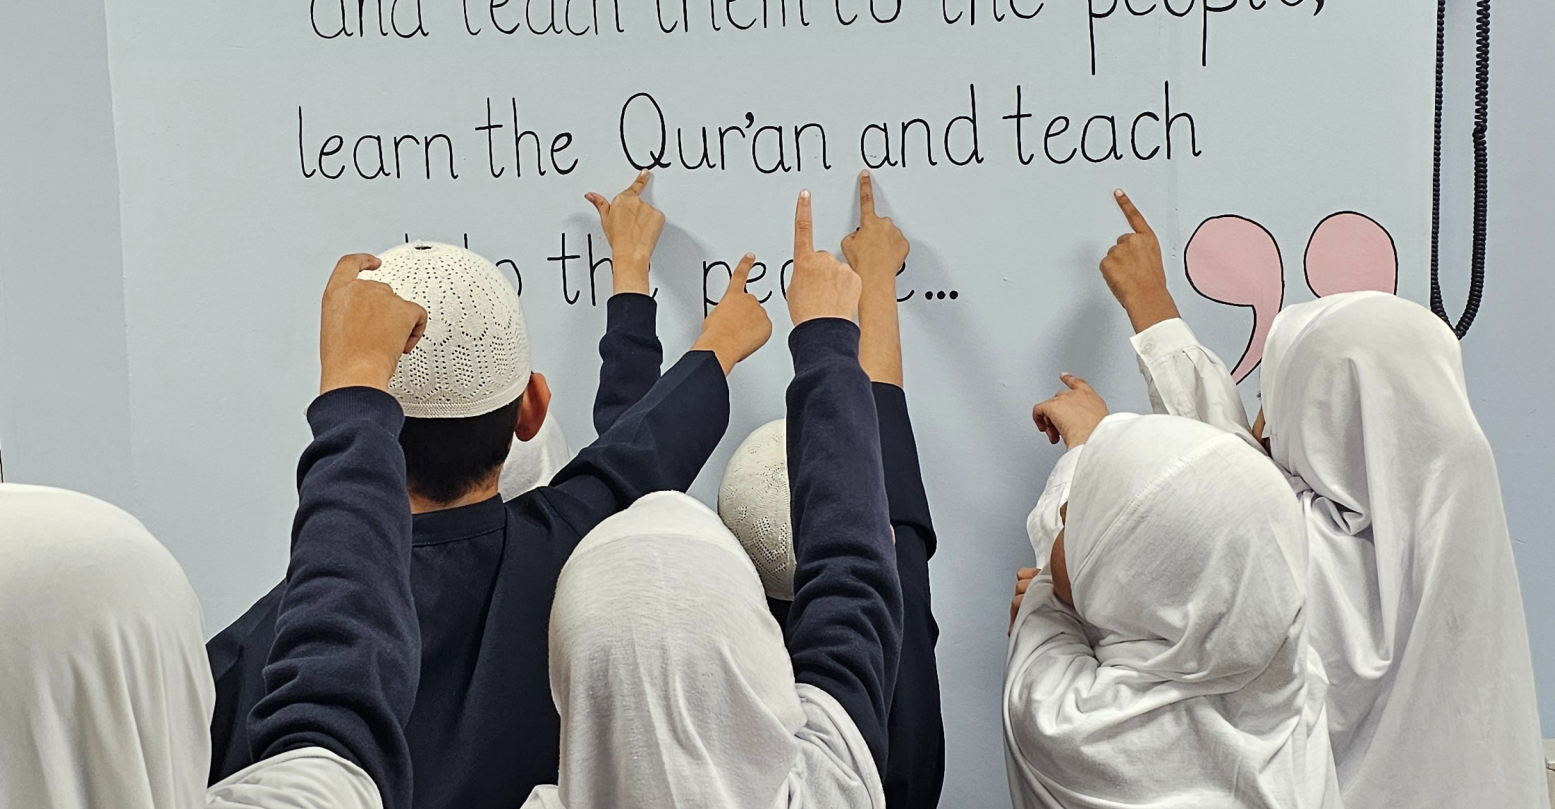 and teach them to the people,
learn the Qur'an and teach
to the people...